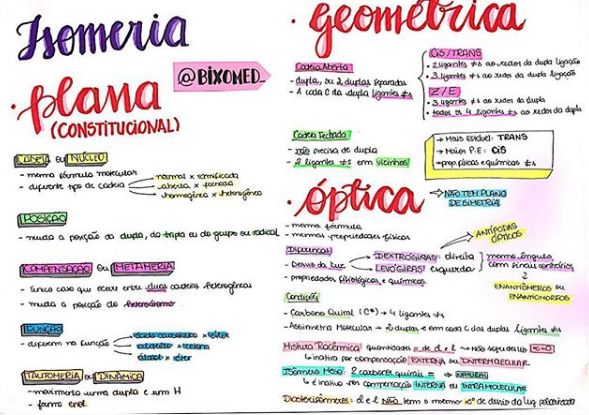 Isomeria
• plana
(CONSTITUCIONAL)
@BIXOMED_
CADEIA ou NÚCLEO
- mesma fórmula molecular
- diferente tipo de cadeia
normal x ramificada
aberta x fechada
homogênea x heterogênea
POSIÇÃO
- muda a posição da dupla, da tripla ou do grupo ou radical
COMPENSAÇÃO OU METAMERIA
- único caso que ocorre entre duas cadeias heterogêneas
- muda a posição do heteroátomo
FUNÇÃO
- diferem na função
ácido carboxílico x éster
aldeído x cetona
álcool x éter
TAUTOMERIA ou DINÂMICA
- movimento uma dupla e um H
- forma enol
• geométrica
Cadeia Aberta
- dupla, ou 2 duplas separadas
- A cada C da dupla ligantes ≠s
CIS / TRANS
• 2 ligantes ≠s ao redor da dupla ligação
• 3 ligantes ≠s ao redor da dupla ligação
Z / E
• 3 ligantes ≠s ao redor da dupla
• todos os 4 ligantes ≠s ao redor da dupla
Cadeia Fechada
- não precisa de dupla
- 2 ligantes ≠s em vizinhos
→ Mais Estável: TRANS
→ Maior P.E: CIS
→ prop. físicas e químicas ≠s
• óptica
→ NÃO TEM PLANO
DE SIMETRIA
- mesma fórmula
- mesmas propriedades físicas
Diferenças
- Desvio da Luz
DEXTRÓGIRAS: direita
LEVÓGIRAS: esquerda
- propriedades fisiológicas e químicas
ANTÍPODAS
ÓPTICOS
mesmo ângulo,
com sinais contrários
ENANTIÔMEROS OU
ENANTIOMORFOS
Condições
- Carbono Quiral (C*) → 4 ligantes ≠s
- Assimetria Molecular → 2 duplas e em cada C das duplas Ligantes ≠s
Mistura Racêmica: quantidades = de d e l → Não sofre desvio
↳ inativo por compensação EXTERNA ou INTERMOLECULAR
Isômero Meso: 2 carbonos quirais =
↳ é inativo por compensação INTERNA OU INTRAMOLECULAR
Diasteroisômeros: d e l NÃO tem o mesmo de desvio da luz polarizada